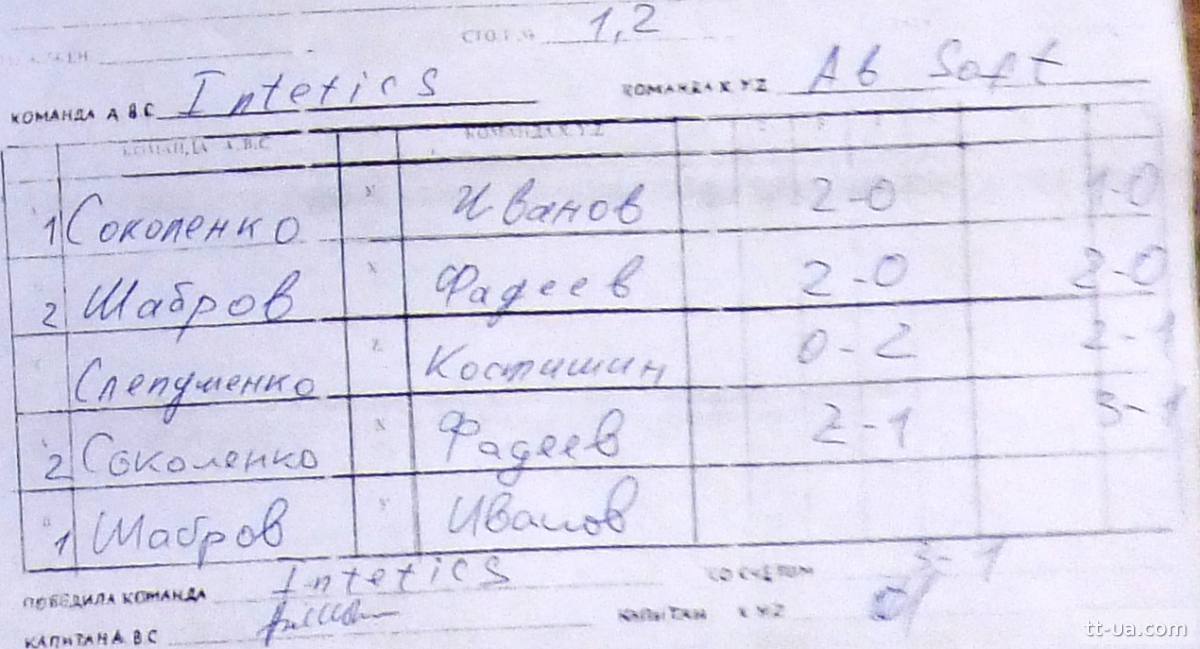 СТОЛ 1,2
КОМАНДА А В С Intetics КОМАНДА X Y Z Ab Soft
КОМАНДА А.В.С КОМАНДА X Y Z
1 Соколенко X Иванов 2-0 1-0
2 Шабров X Фадеев 2-0 2-0
Слепуменко Z Костишин 0-2 2-1
2 Соколенко X Фадеев 2-1 3-1
1 Шабров Y Иванов
ПОБЕДИЛА КОМАНДА Intetics СО СЧЕТОМ 3-1
КАПИТАН А В С КАПИТАН X Y Z
tt-ua.com